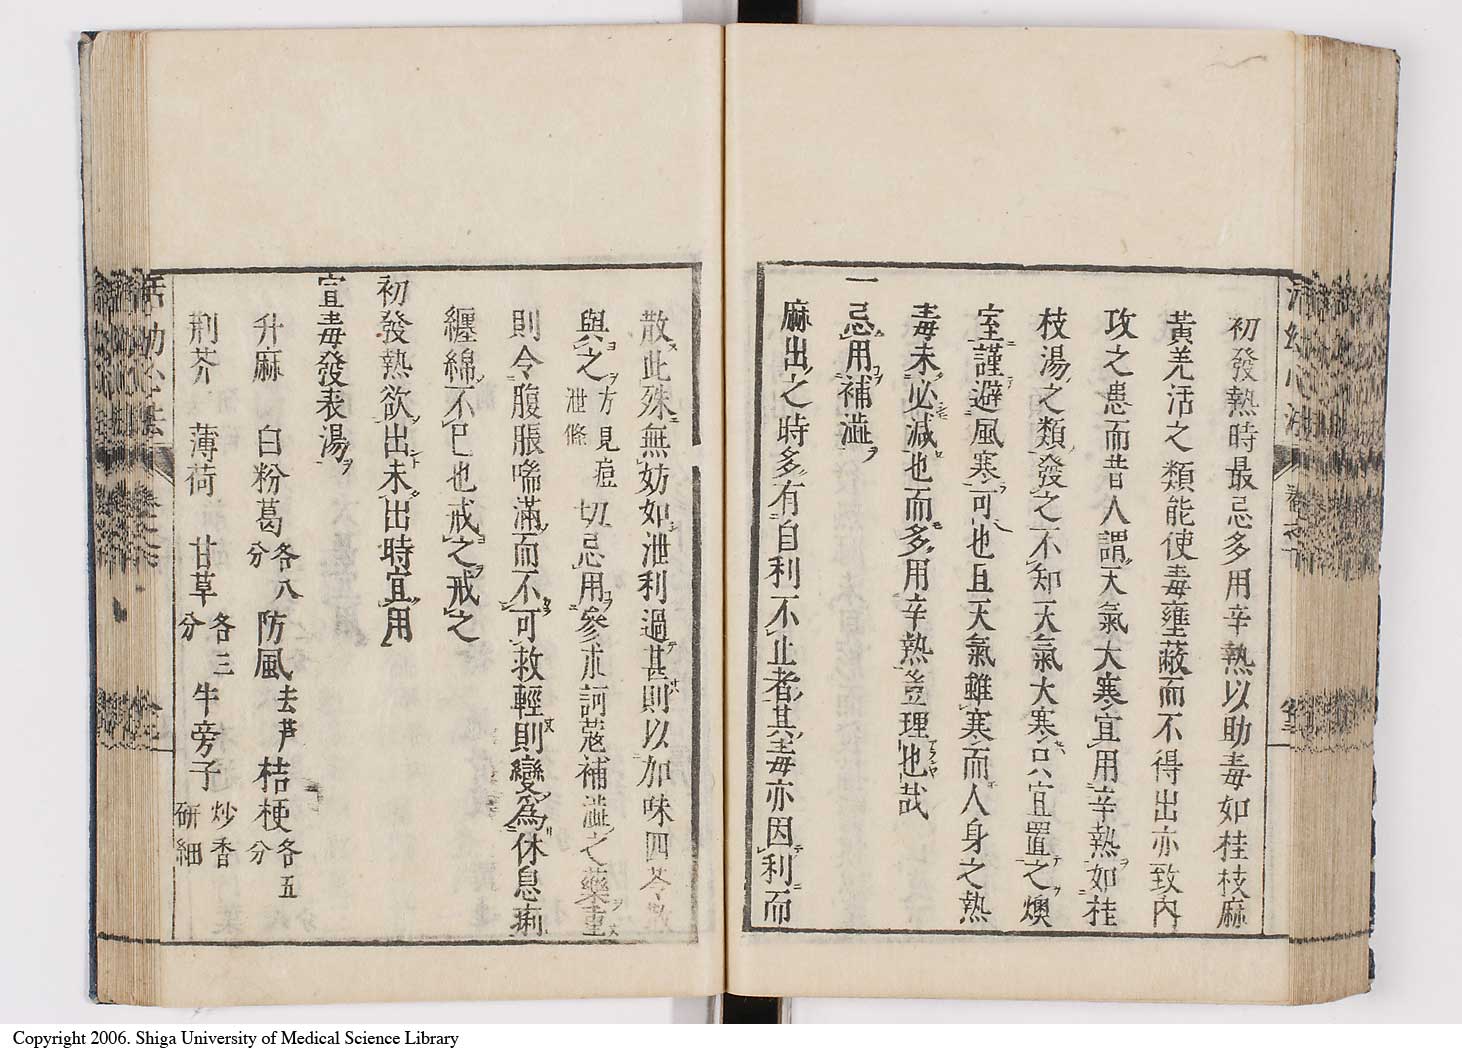 初發熱時最忌多用辛熱以助毒如桂枝麻
黃羌活之類能使毒壅蔽而不得出亦致內
攻之患而昔人謂天氣大寒宜用辛熱如桂
枝湯之類發之不知天氣大寒只宜置之燠
室謹避風寒可也且天氣雖寒而人身之熱
毒未必減也而多用辛熱豈理也哉
一忌用補澁
麻出之時多有自利不止者其毒亦因利而
散此殊無妨如泄利過甚則以加味四苓散
與之方見痘泄條切忌用參朮訶蔻補澁之藥重
則令腹脹喘滿而不可救輕則變爲休息痢
纏綿不已也戒之戒之
初發熱欲出未出時宜用
宣毒發表湯
升麻 白粉葛各八分 防風去芦 桔梗各五分
荆芥 薄荷 甘草各三分 牛旁子炒香研細
活幼心法
Copyright 2006. Shiga University of Medical Science Library